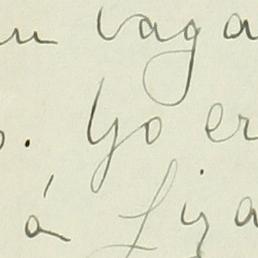 un vaga
. Yo er
á Liga